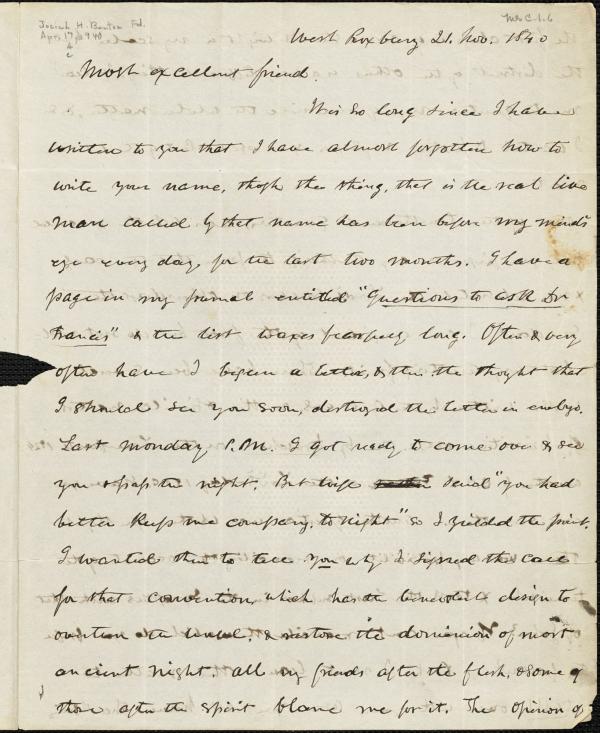 Josiah H. Benton Fd.
Apr. 17, 1940
c
Ms C.1.6
West Roxbury 21. Nov. 1840
Most excellent friend
It is so long since I have
written to you that I have almost forgotten how to
write your name, thogh the thing, that is the real live
man called by that name has been before my mind's
eye every day, for the last two months. I have a
page in my journal entitled "Questions to ask Dr
Francis" & the list waxes fearfully long. Often & very
often have I begun a letter, & then the thought that
I should see you soon, destroyed the letter in embryo.
Last monday P.M. I got ready to come over & see
you & pass the night. But wife said "you had
better keep me company, to night" so I yielded the point.
I wanted then to tell you why I signed the call
for that convention, which has the benevolent design to
overturn the , & restore the dominion of most
ancient Night. All my friends after the flesh, & some of
those after the spirit blame me for it. The opinion of